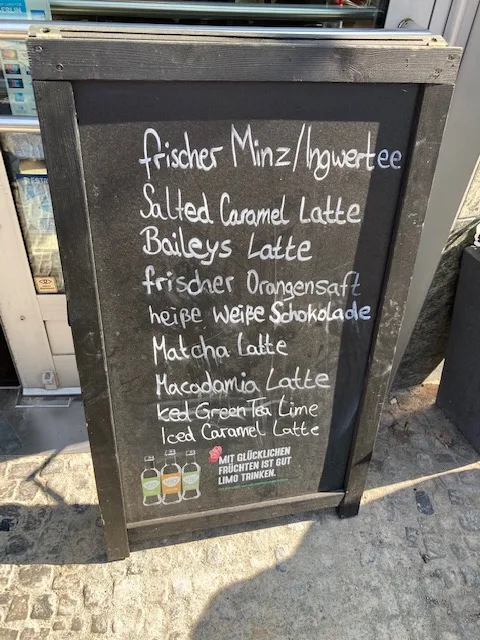 frischer Minz/Ingwertee
Salted Caramel Latte
Baileys Latte
frischer Orangensaft
heiße weiße Schokolade
Matcha Latte
Macadamia Latte
Iced Green Tea Lime
Iced Caramel Latte
MIT GLÜCKLICHEN
FRÜCHTEN IST GUT
LIMO TRINKEN.